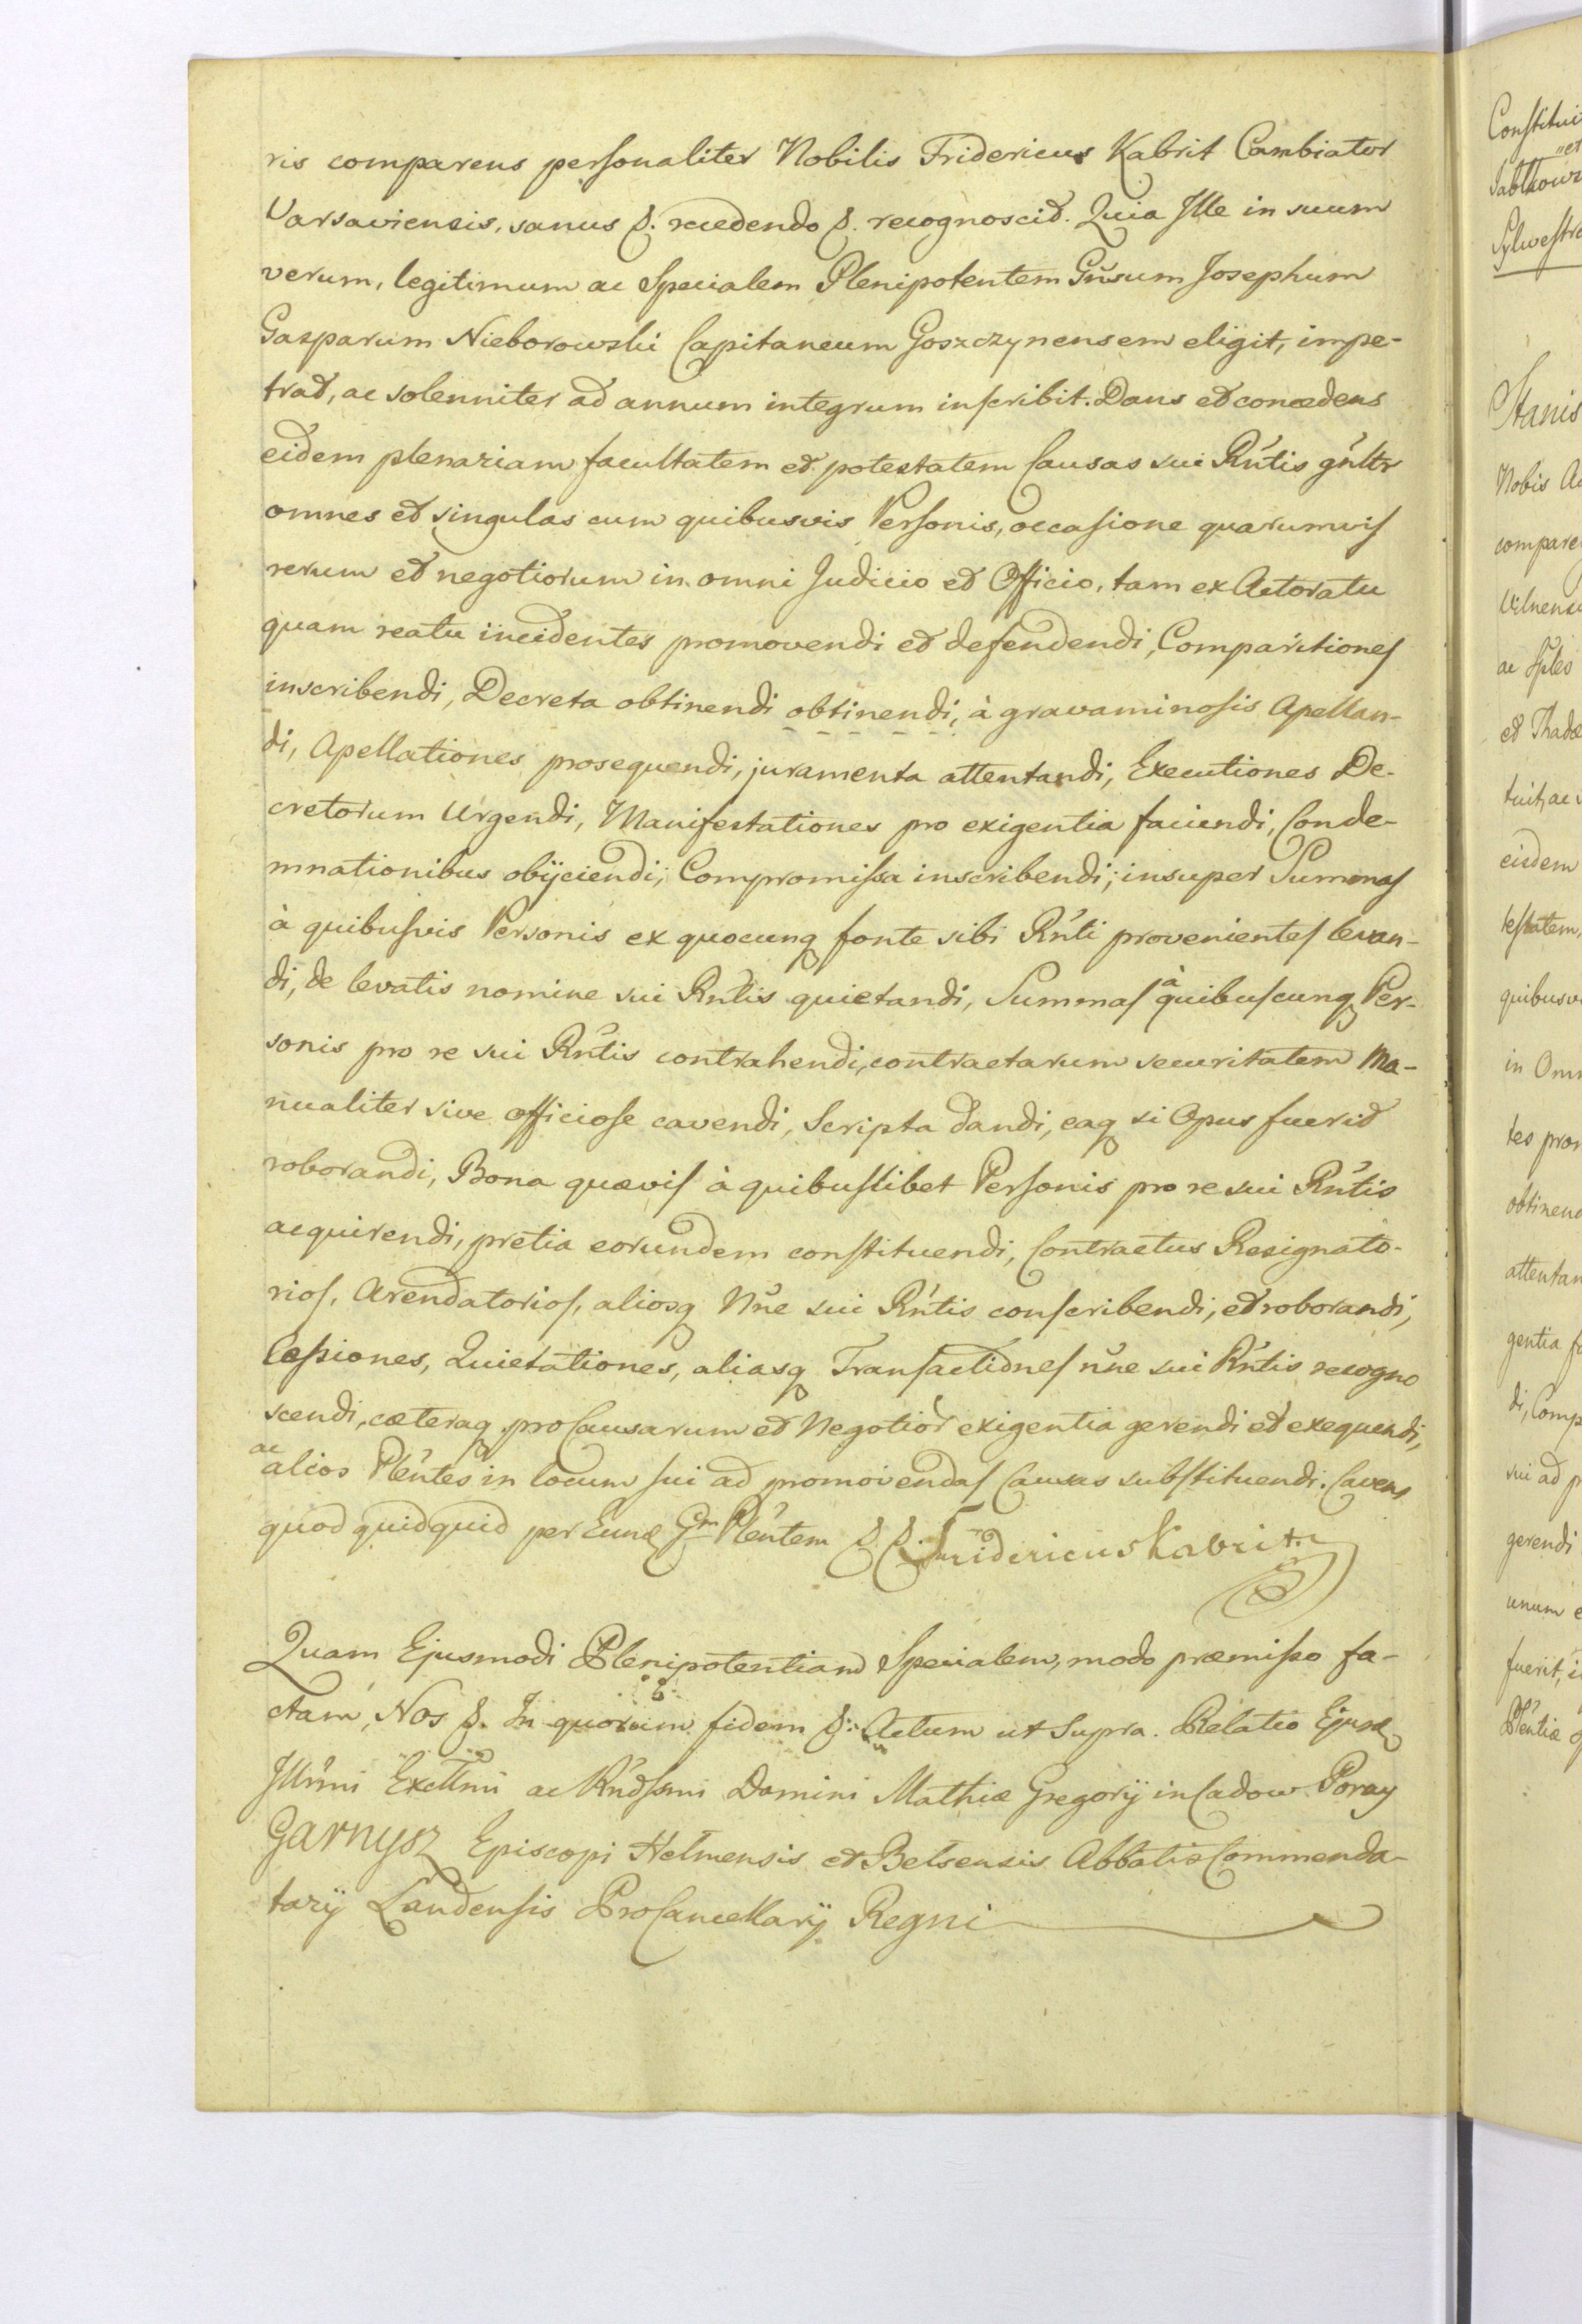 ris comparens personaliter Nobilis Fridericus Kabrit Cambiator
Varsaviensis, sanus &. recedendo &. recognoscit. Quia Ille in suum
verum, legitimum ac Specialem Plenipotentem Gnsum Josephum
Gasparum Nieborowski Capitaneum Goszczynensem eligit, impe-
trat, ac solenniter ad annum integrum inscribit. Dans et concedens
eidem plenariam facultatem et potestatem Causas sui Rntis gnltr
omnes et singulas cum quibusvis Personis, occasione quarumvis
rerum et negotiorum in omni Judicio et Officio, tam ex Actoratu
quam reatu incidentes promovendi et defendendi, Comparitiones
inscribendi, Decreta obtinendi obtinendi, à gravaminosis Apellan-
di, Apellationes prosequendi, juramenta attentandi, Executiones De-
cretorum Urgendi, Manifestationes pro exigentia faciendi, Conde-
mnationibus obijciendi; Compromissa inscribendi; insuper Summas
à quibusvis Personis ex quocunq fonte sibi Rnti provenientes levan-
di, de levatis nomine sui Rntis quietandi, Summas à quibuscunq Per-
sonis pro re sui Rntis contrahendi, contractarum securitatem Ma-
nualiter sive officiose cavendi, Scripta dandi, eaq si Opus fuerit
roborandi, Bona quævis à quibuslibet Personis pro re sui Rntis
acquirendi, pretia eorundem constituendi, Contractus Resignato-
rios, Arendatorios, aliosq Nne sui Rntis conscribendi, et roborandi,
Cessiones, Quietationes, aliasq Transactiones nne sui Rntis recogno
scendi, cæteraq pro Causarum et Negotior exigentia gerendi et exequendi,
ac alios Plentes in locum sui ad promovendas Causas substituendi. Cavens
quod quidquid per Eund Gm Plentem &. &. Fridericus Kabrit.
Quam Ejusmodi Plenipotentiam Specialem, modo præmisso fa-
ctam, Nos &. In quorum fidem &: Actum ut Supra. Relatio Ejusd
Illmi Excllmi ac Rndssmi Domini Mathiæ Gregorij in Cadow Poray
Garnysz Episcopi Helmensis et Belsensis Abbatis Commenda-
tarij Landensis ProCancellarij Regni
Constitui
et
Jabłkows
Sylwestr
Stanis
Nobis Ac
compare
Vilnens
ac Sples
et Thadæ
tuit, ac
eisdem
testatem,
quibusv
in Omn
tes pro
obtinend
attentan
gentia f
di, Comp
sui ad p
gerendi
unum e
fuerit, i
Plentiæ